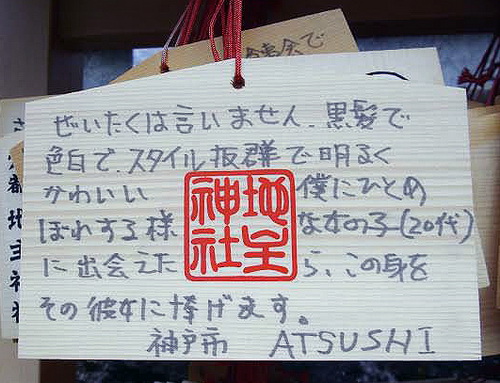 ぜいたくは言いません。黒髪で
色白で、スタイル抜群で明るく
かわいい 僕にひとめ
ぼれする様 な女の子(20代)
に出会えた ら、この身を
その彼女に捧げます。
神戸市 ATSUSHI
地主
神社